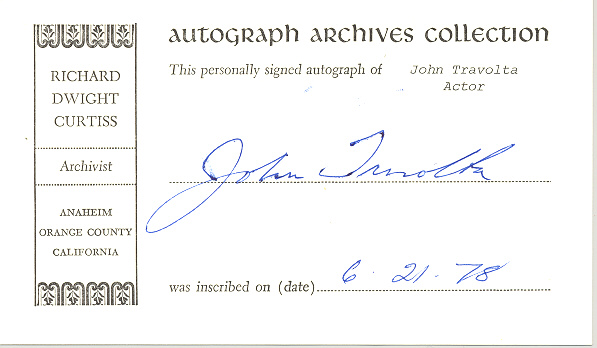 autograph archives collection
RICHARD
DWIGHT
CURTISS
Archivist
ANAHEIM
ORANGE COUNTY
CALIFORNIA
This personally signed autograph of John Travolta
Actor
John Travolta
was inscribed on (date) 6 · 21 · 78